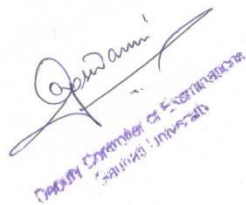 Goswami
Deputy Controller of Examinations
Gauhati University